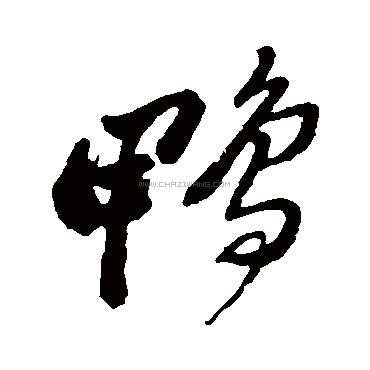 鸭
WWW.CHAZIWANG.COM